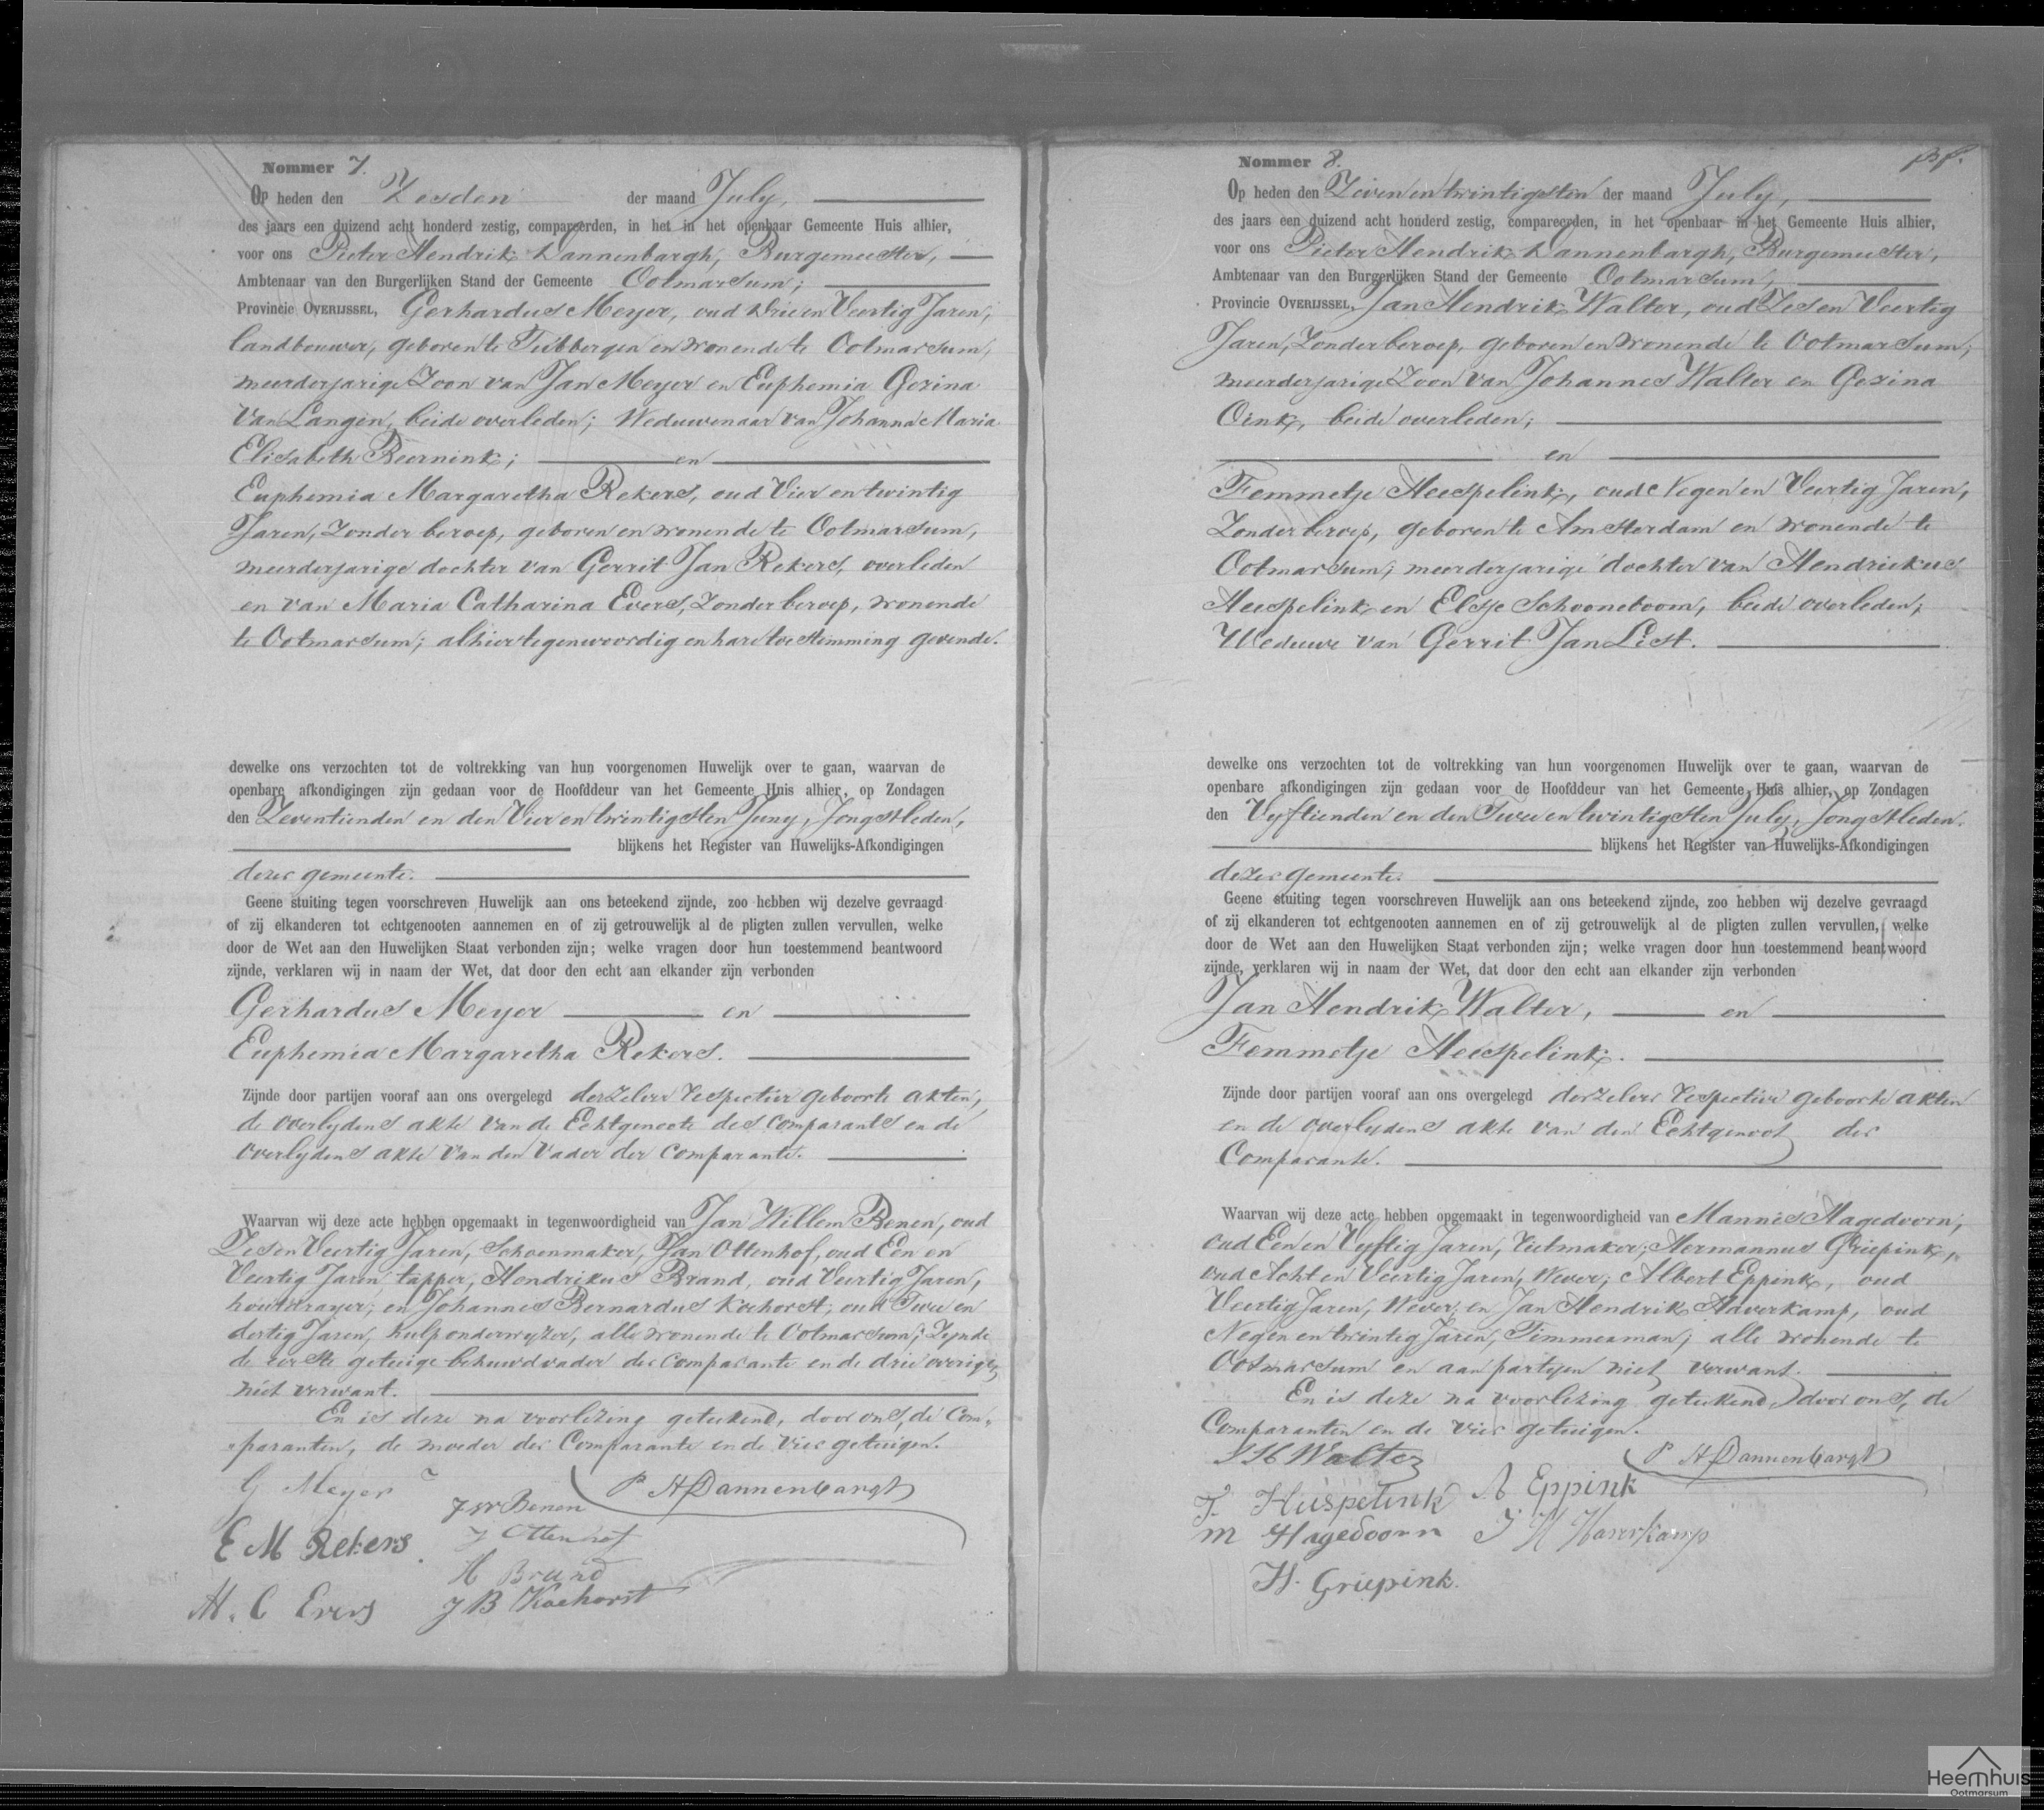 Nommer 7.
Op heden den Zesden der maand July,
des jaars een duizend acht honderd zestig, compareerden, in het in het openbaar Gemeente Huis alhier,
voor ons Pieter Hendrik Dannenbargh, Burgemeester,
Ambtenaar van den Burgerlijken Stand der Gemeente Ootmarsum;
Provincie OVERIJSSEL, Gerhardus Meyer, oud Drie en Veertig Jaren,
landbouwer, geboren te Tubbergen en wonende te Ootmarsum,
meerderjarige Zoon van Jan Meyer en Euphemia Gezina
van Langen, beide overleden; Weduwenaar van Johanna Maria
Elisabeth Beernink; en
Euphemia Margaretha Rekers, oud Vier en twintig
Jaren, Zonder beroep, geboren en wonende te Ootmarsum,
meerderjarige dochter van Gerrit Jan Rekers, overleden
en van Maria Catharina Evers, Zonder beroep, wonende
te Ootmarsum; alhier tegenwoordig en hare toestemming gevende.
dewelke ons verzochten tot de voltrekking van hun voorgenomen Huwelijk over te gaan, waarvan de
openbare afkondigingen zijn gedaan voor de Hoofddeur van het Gemeente Huis alhier, op Zondagen
den Zeventienden en den Vier en twintigsten Juny, Jongstleden,
blijkens het Register van Huwelijks-Afkondigingen
dezer gemeente.
Geene stuiting tegen voorschreven Huwelijk aan ons beteekend zijnde, zoo hebben wij dezelve gevraagd
of zij elkanderen tot echtgenooten aannemen en of zij getrouwelijk al de pligten zullen vervullen, welke
door de Wet aan den Huwelijken Staat verbonden zijn; welke vragen door hun toestemmend beantwoord
zijnde, verklaren wij in naam der Wet, dat door den echt aan elkander zijn verbonden
Gerhardus Meyer en
Euphemia Margaretha Rekers.
Zijnde door partijen vooraf aan ons overgelegd derzelver respective geboorte akten,
de overlydens akte van de Echtgenoote des comparants en de
overlydens akte van den Vader der comparante.
Waarvan wij deze acte hebben opgemaakt in tegenwoordigheid van Jan Willem Benen, oud
Zes en Veertig Jaren, Schoenmaker, Jan Ottenhof, oud Een en
Veertig Jaren, tapper, Hendrikus Brand, oud Veertig Jaren,
houtdrayer; en Johannes Bernardus Koehorst, oud Twee en
dertig Jaren, hulponderwyzer, alle wonende te Ootmarsum; Zynde
de eerste getuige behuwdvader der comparante en de drie overigen
niet verwant.
En is deze na voorlezing geteekend, door ons, de Com-
paranten, de moeder der Comparante en de vier getuigen.
G Meyer P H Dannenbargh
J W Benen
E M Rekers J Ottenhof
H Brand
M. C Evers J B Koehorst
Nommer 8.
Op heden den Zeven en twintigsten der maand July,
des jaars een duizend acht honderd zestig, compareerden, in het openbaar in het Gemeente Huis alhier,
voor ons Pieter Hendrik Dannenbargh, Burgemeester,
Ambtenaar van den Burgerlijken Stand der Gemeente Ootmarsum,
Provincie OVERIJSSEL, Jan Hendrik Walter, oud Zes en Veertig
Jaren, Zonder beroep, geboren en wonende te Ootmarsum,
meerderjarige Zoon van Johannes Walter en Gezina
Oink, beide overleden;
en
Femmetje Heespelink, oud Negen en Veertig Jaren,
Zonder beroep, geboren te Amsterdam en wonende te
Ootmarsum; meerderjarige dochter van Hendriekus
Heespelink en Elsje Schooneboom, beide overleden;
Weduwe van Gerrit Jan List.
dewelke ons verzochten tot de voltrekking van hun voorgenomen Huwelijk over te gaan, waarvan de
openbare afkondigingen zijn gedaan voor de Hoofddeur van het Gemeente Huis alhier, op Zondagen
den Vyftienden en den Twee en twintigsten July, Jongstleden.
blijkens het Register van Huwelijks-Afkondigingen
dezer gemeente.
Geene stuiting tegen voorschreven Huwelijk aan ons beteekend zijnde, zoo hebben wij dezelve gevraagd
of zij elkanderen tot echtgenooten aannemen en of zij getrouwelijk al de pligten zullen vervullen, welke
door de Wet aan den Huwelijken Staat verbonden zijn; welke vragen door hun toestemmend beantwoord
zijnde, verklaren wij in naam der Wet, dat door den echt aan elkander zijn verbonden
Jan Hendrik Walter, en
Femmetje Heespelink.
Zijnde door partijen vooraf aan ons overgelegd derzelver respective geboorte akten
en de overlydens akte van den Echtgenoot der
Comparante.
Waarvan wij deze acte hebben opgemaakt in tegenwoordigheid van Mannes Hagedoorn,
oud Een en Vyftig Jaren, Rietmaker; Hermannus Griepink,
oud Acht en Veertig Jaren, Wever; Albert Eppink, oud
Veertig Jaren, Wever; en Jan Hendrik Haverkamp, oud
Negen en twintig Jaren, Timmerman; alle wonende te
Ootmarsum en aan partyen niet verwant.
En is deze na voorlezing geteekend, door ons, de
Comparanten en de vier getuigen.
J H Walter P H Dannenbargh
F. Huspelink A Eppink
M Hagedoorn J H Haverkamp
H. Griepink.
Heemhuis
Ootmarsum